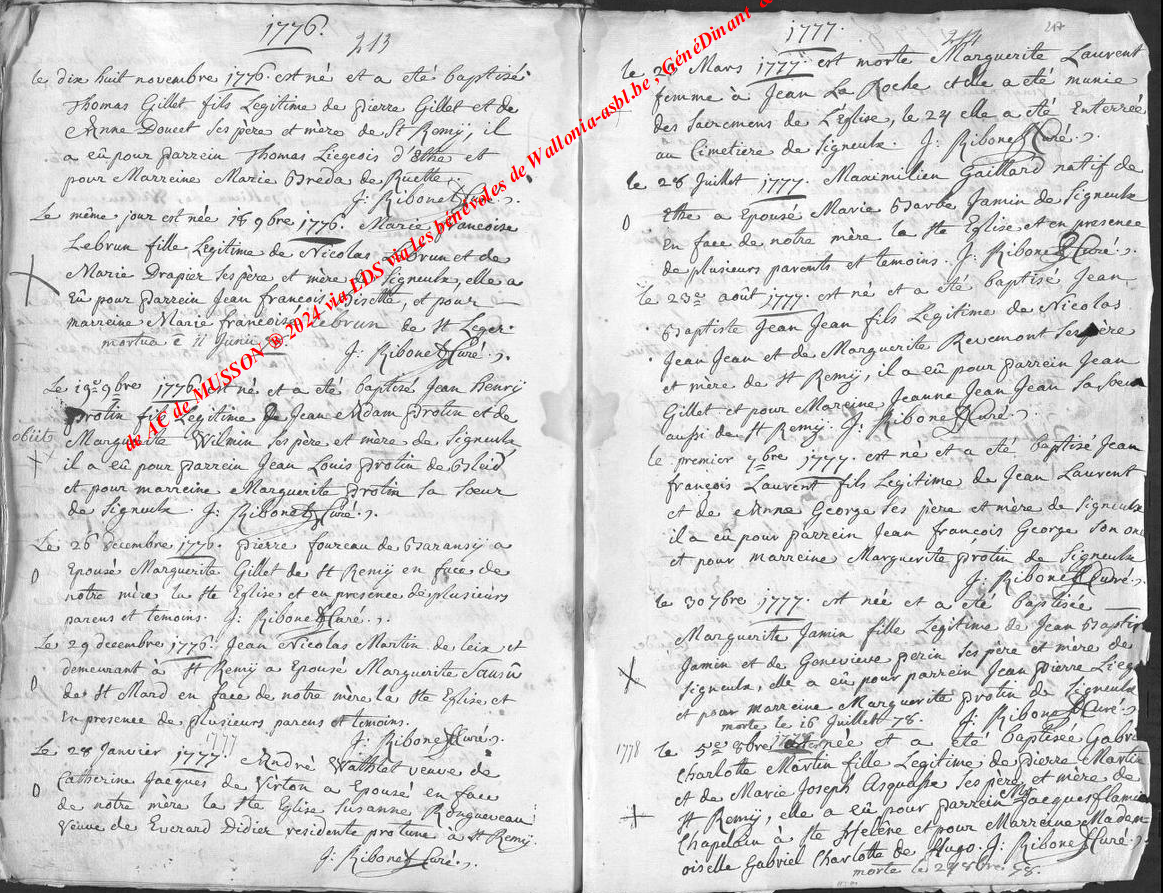 1776.
213
le dix huit novembre 1776 est né et a été baptisé
Thomas Gillet fils Legitime de pierre Gillet et de
Anne Doucet ses père et mère de St Remÿ, il
a eû pour parrein Thomas Liegeois d'Ethe et
pour Marreine Marie Breda de Ruette.
J: Ribonet Curé.
Le même jour est née 18 9bre 1776. Marie françoise
Lebrun fille Legitime de Nicolas Lebrun et de
Marie Drapier ses père et mère de Signeulx, elle a
Eû pour parrein Jean francois Gisette, et pour
marreine Marie françoise Lebrun de St Leger.
mortua e 11 Junii
J: Ribonet Curé.
Le 19e 9bre 1776 est né et a été baptisé Jean Henry
protin fils Legitime de Jean Adam protin et de
obiit
Marguerite Wilmin ses père et mère de Signeulx
il a eû pour parrein Jean Louis protin de
et pour marreine Marguerite protin sa soeur
de Signeulx. J: Ribonet Curé.
Le 26 decembre 1776. pierre foureau de Baransÿ a
Epousé Marguerite Gillet de St Remÿ en face de
notre mère la Ste Eglise et en presence de plusieurs
parens et temoins. J: Ribonet Curé.
Le 29 decembre 1776. Jean Nicolas Martin de leix et
demeurant à St Remÿ a Epousé Marguerite
de St Mard en face de notre mère la Ste Eglise et
En presence de plusieurs parens et temoins.
J: Ribonet Curé.
1777
Le 28 Janvier 1777. André Wathlet veuve de
Catherine Jacques de Virton a Epousé en face
de notre mère la Ste Eglise Susanne
veuve de Everard Didier residente à St Remÿ.
J: Ribonet Curé.
1777.
214
217
le Mars 1777. est morte Marguerite Laurent
femme à Jean La Roche et elle a été munie
des Sacremens de L'Eglise, le 24 elle a été Enterrée
au Cimetiere de Signeulx. J: Ribonet Curé.
le 28 Juillet 1777. Maximilien Gaillard natif de
Ethe a Epousé Marie Barbe Jamin de Signeulx
En face de notre mère la Ste Eglise et en presence
de plusieurs parents et temoins. J: Ribonet Curé.
le 23e août 1777. est né et a été baptisé Jean
Baptiste Jean Jean fils Legitime de Nicolas
Jean Jean et de Marguerite Revemont ses père
et mère de St Remÿ, il a eû pour parrein Jean
Gillet et pour Mareine Jeanne Jean Jean sa soeur
aussi de St Remÿ. J: Ribonet Curé.
le premier 7bre 1777. est né et a été baptisé Jean
françois Laurent fils Legitime de Jean Laurent
et de Anne George ses père et mère de Signeulx
il a eu pour parrein Jean françois George son
et pour marreine Marguerite protin de Signeulx
J: Ribonet Curé.
le 30 7bre 1777. est née et a été baptisée
Marguerite Jamin fille Legitime de Jean
Jamin et de Genevieve perin ses père et mère de
Signeulx, elle a eû pour parrein Jean pierre
et pour marreine Marguerite protin de Signeulx
morte le 16 Juillet 78. J: Ribonet Curé.
1778
le 5e 8bre est née et a été baptisée
Charlotte Martin fille Legitime de pierre Martin
et de Marie Joseph ses père et mère de
St Remÿ, elle a eû pour parrein Mr Jacques
Chapelain à Ste Helêne et pour Marreine
oiselle Gabriel Charlotte de Hugo. J: Ribonet Curé.
morte le 29 8bre 78.
de AC de MUSSON ® 2024 via LDS via Les bénévoles de Wallonia-asbl.be , GénéDinant &